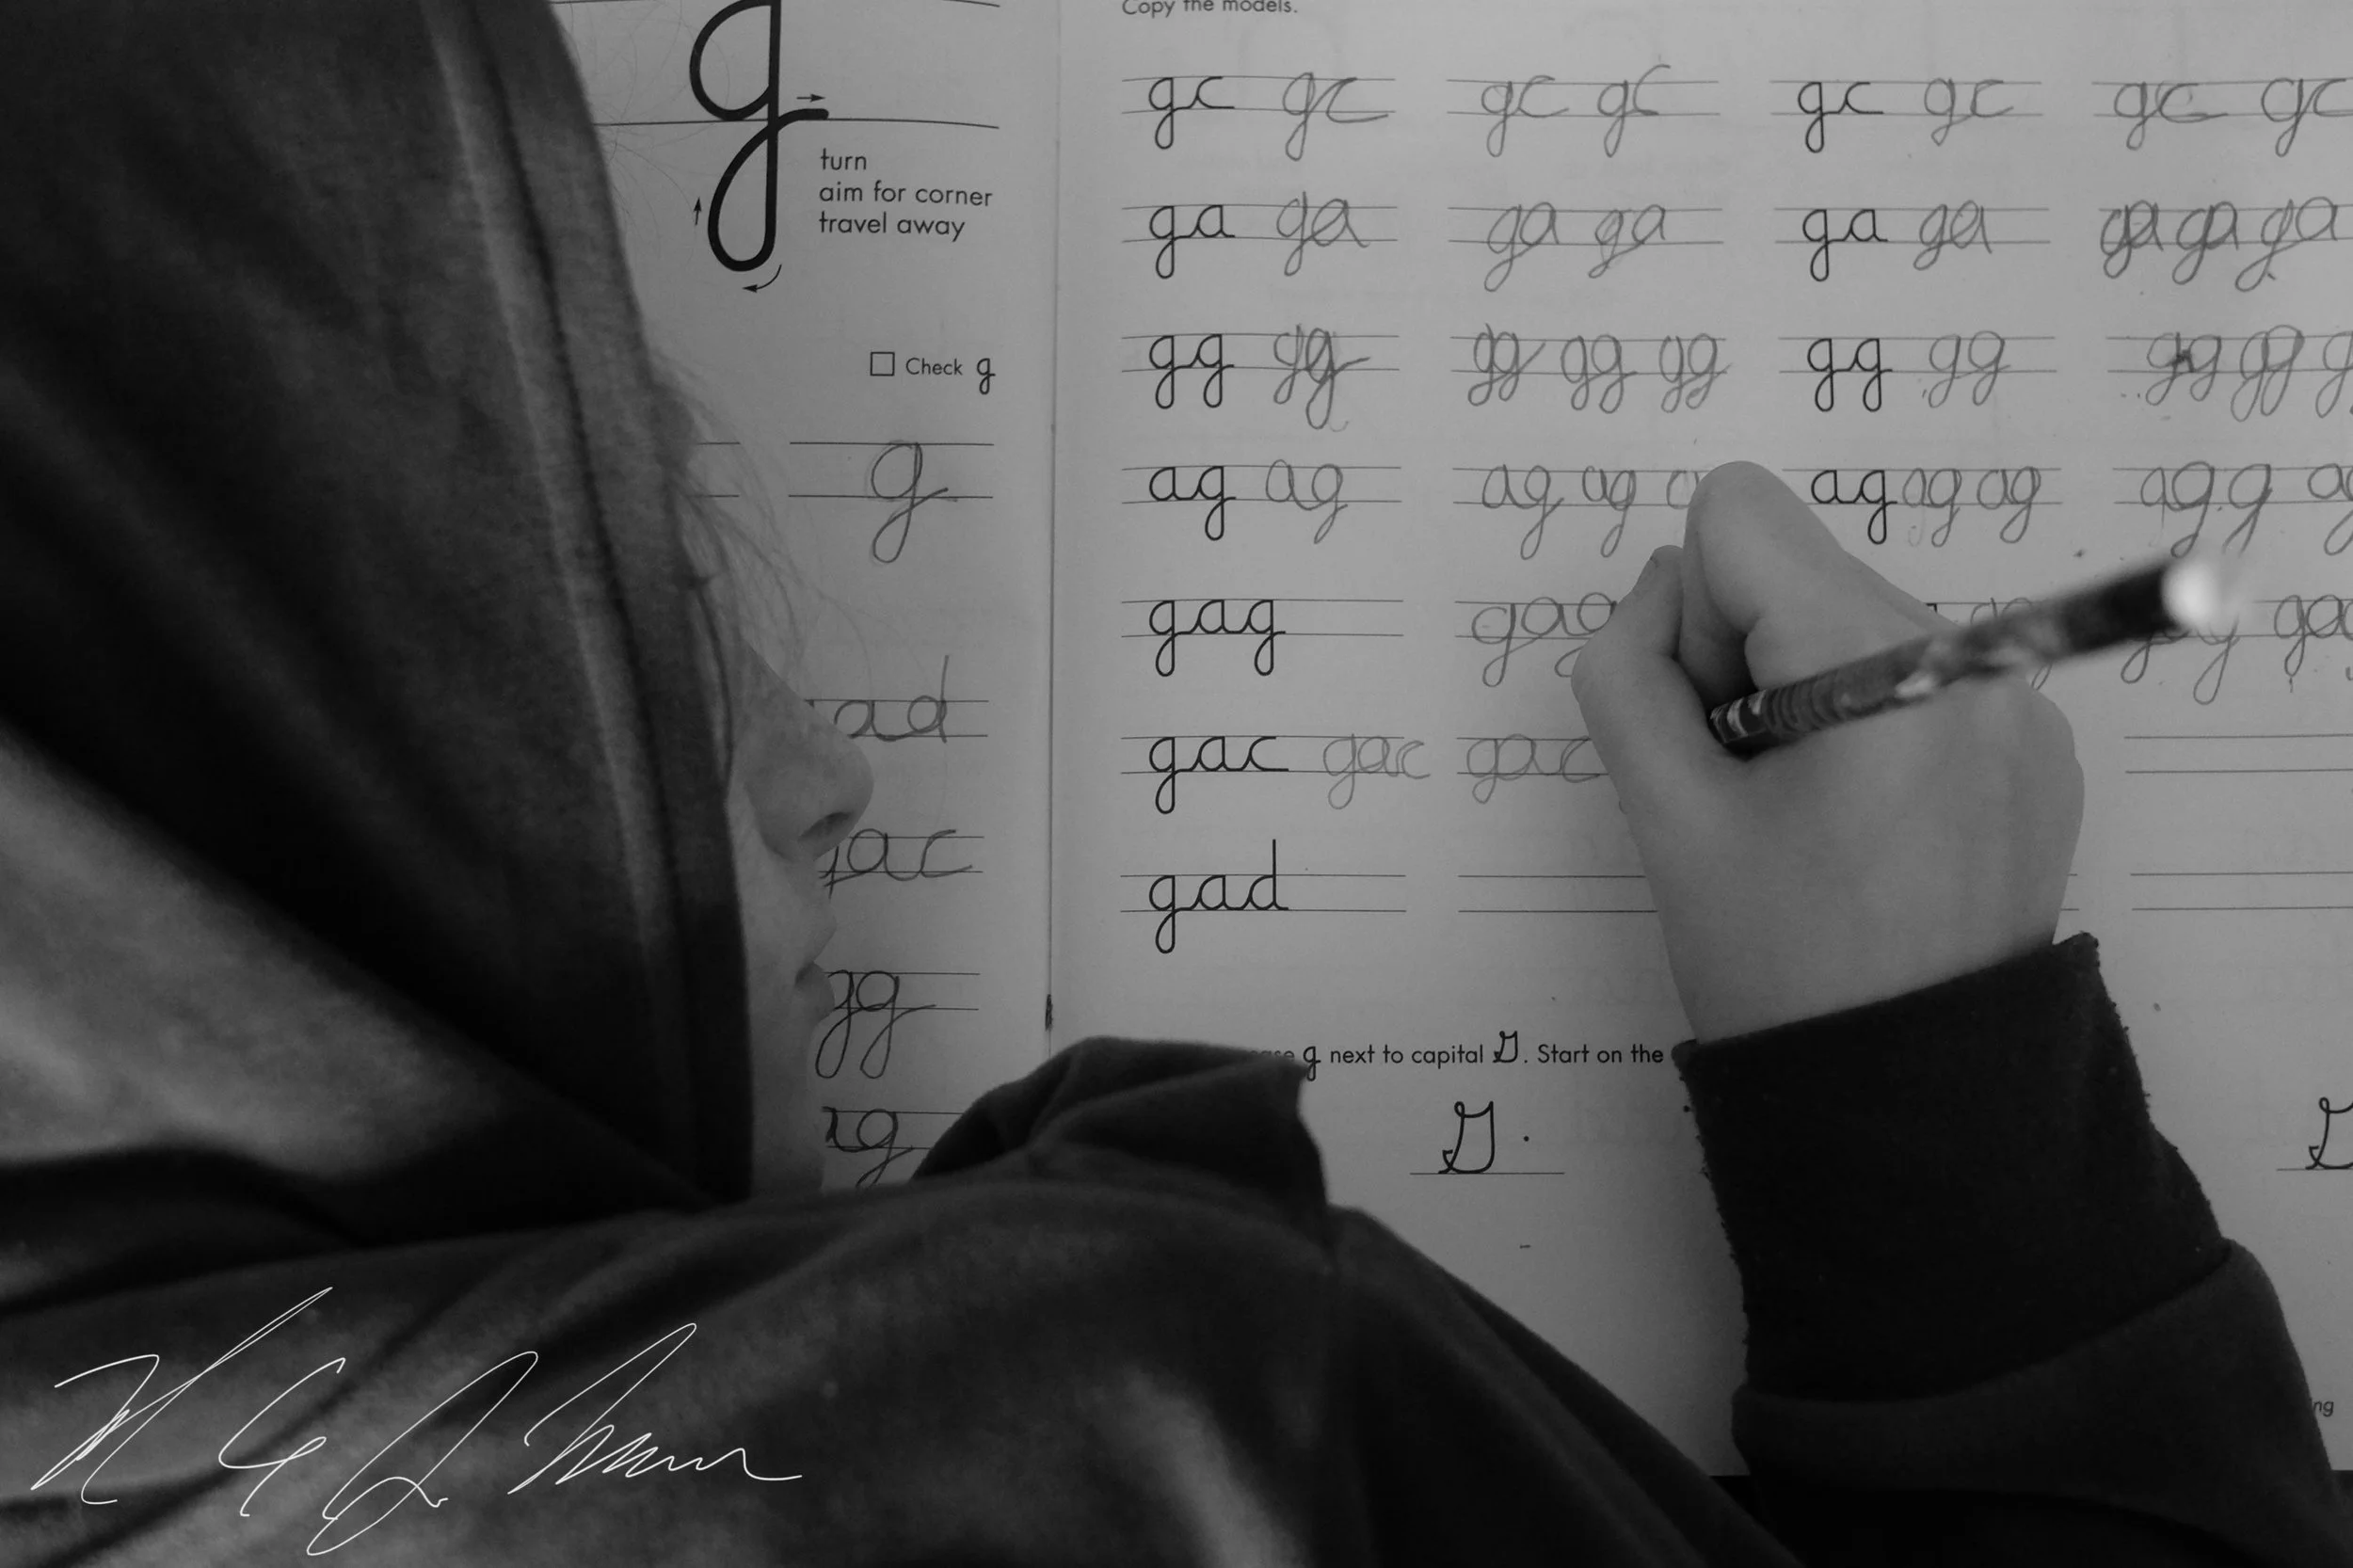 g
turn
aim for corner
travel away
Check g
g
ad
ac
gg
Copy the models.
gc gc gc gc gc gc gc gc
ga ga ga ga ga ga ga ga ga
gg gg gg gg gg gg gg gg gg g
ag ag ag ag ag ag ag agg a
gag gag ga
gac gac gac
gad
g next to capital G. Start on the
G